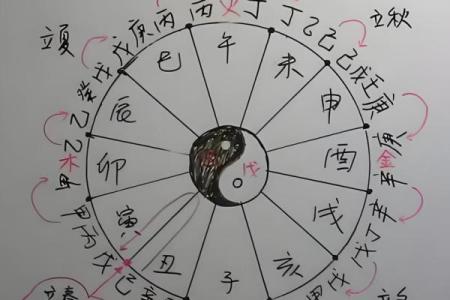 立夏
戊庚丙
丙火丁
丁乙己
立秋
己戊壬庚
庚金辛
辛丁戊
戊甲
乙癸戊
乙木甲
甲丙戊
己辛
午
未
申
酉
戌
亥
子
丑
寅
卯
辰
巳
戊
立春